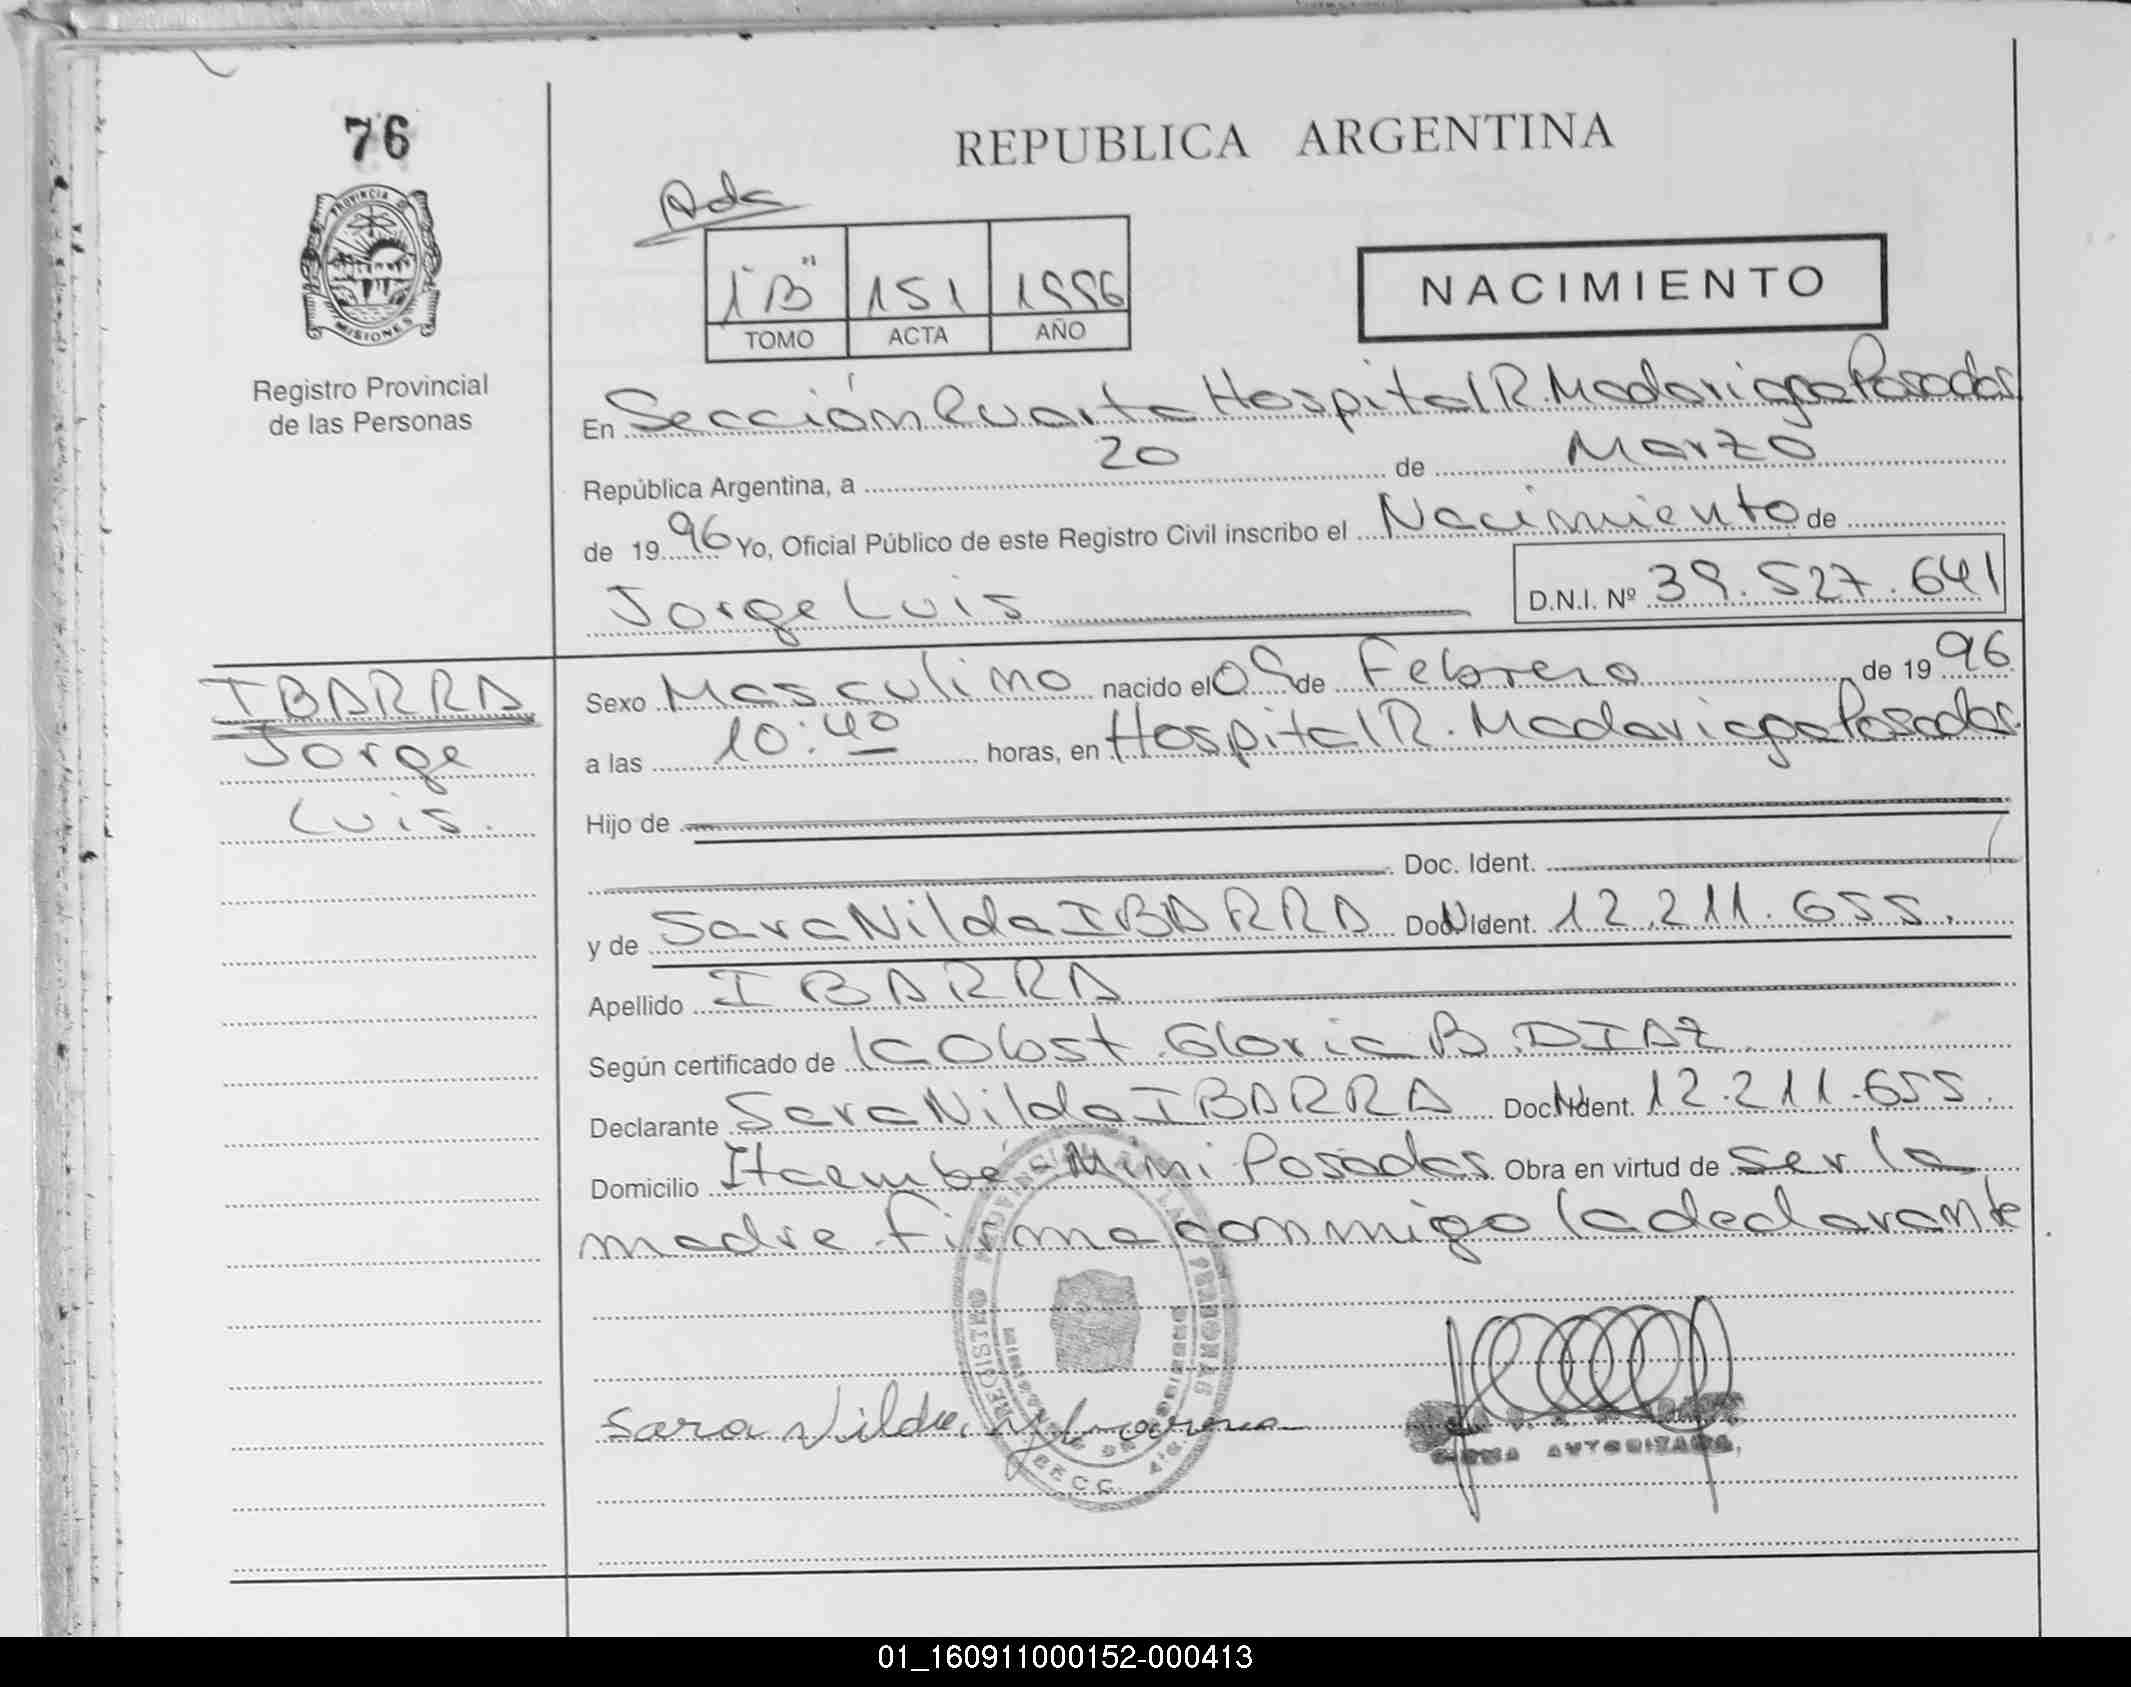 76
PROVINCIA DE
MISIONES
Registro Provincial
de las Personas
REPUBLICA ARGENTINA
1 "B" 151 1996
TOMO ACTA AÑO
NACIMIENTO
En Sección Cuarta Hospital R. Madariaga Posadas
República Argentina, a 20 de Marzo
de 1996 Yo, Oficial Público de este Registro Civil inscribo el Nacimiento de
Jorge Luis D.N.I. Nº 39.527.641
IBARRA
Jorge
Luis.
Sexo Masculino nacido el 09 de Febrero de 1996
a las 10:40 horas, en Hospital R. Madariaga Posadas.
Hijo de
Doc. Ident.
y de Sara Nilda IBARRA Doc. Ident. 12.211.655.
Apellido IBARRA
Según certificado de la Obst. Gloria B. DIAZ.
Declarante Sara Nilda IBARRA Doc. Ident. 12.211.655.
Domicilio Itaembé-Mini Posadas. Obra en virtud de ser la
madre. firma conmigo la declarante.
Sara Nilda
AUTORIZADA
01_160911000152-000413